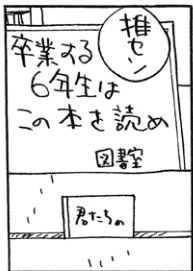 推セン
卒業する
6年生は
この本を読め
図書室
君たちの